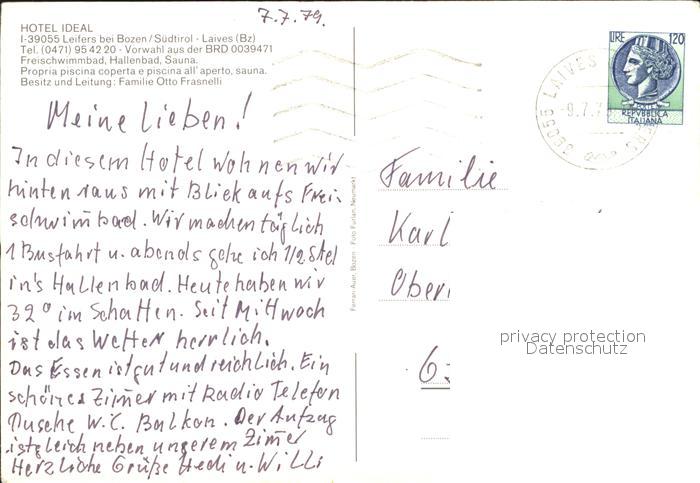 7.7.79.
HOTEL IDEAL
I-39055 Leifers bei Bozen / Südtirol - Laives (Bz)
Tel. (0471) 95 42 20 - Vorwahl aus der BRD 0039471
Freischwimmbad, Hallenbad, Sauna.
Propria piscina coperta e piscina all'aperto, sauna.
Besitz und Leitung: Familie Otto Frasnelli
Meine Lieben!
In diesem Hotel wohnen wir
hinten raus mit Blick aufs Frei-
schwimbad. Wir machen täglich
1 Busfahrt u. abends gehe ich 1/2 Std
in's Hallenbad. Heute haben wir
32° im Schatten. Seit Mittwoch
ist das Wetter herrlich.
Das Essen ist gut und reichlich. Ein
schönes Zimer mit Radio Telefon
Dusche W.C. Balkon. Der Aufzug
ist gleich neben unserem Zimer
Herzliche Grüße Hedi u. Willi
Ferrari-Auer, Bozen - Foto Furlan, Neumarkt
LIRE 120
REPVBBLICA
ITALIANA
39055 LAIVES
9.7.7
Familie
Karl
Ober
6
privacy protection
Datenschutz